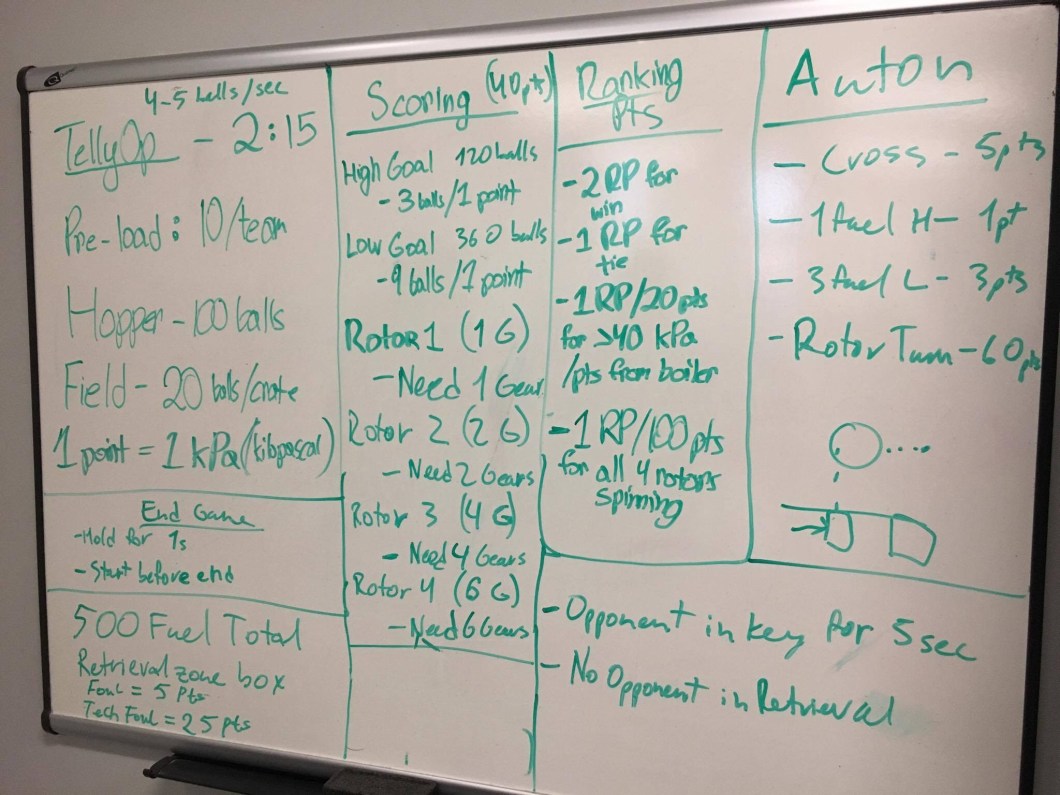 4-5 balls/sec
TellyOp - 2:15
Pre-load: 10/team
Hopper - 100 balls
Field - 20 balls/crate
1 point = 1 kPa (kilopascal)
End Game
- Hold for 1s
- Start before end
500 Fuel Total
Retrieval zone box
Foul = 5 Pts
Tech Foul = 25 pts
Scoring (40pts)
High Goal 120 balls
- 3 balls/1 point
Low Goal 360 balls
- 9 balls/1 point
Rotor 1 (1 G)
- Need 1 Gear
Rotor 2 (2 G)
- Need 2 Gears
Rotor 3 (4 G)
- Need 4 Gears
Rotor 4 (6 G)
- Need 6 Gears
Ranking
Pts
- 2 RP for
win
- 1 RP for
tie
- 1 RP/20 pts
for >40 kPa
/pts from boiler
- 1 RP/100 pts
for all 4 rotors
spinning
Auton
- Cross - 5pts
- 1 fuel H - 1pt
- 3 fuel L - 3pts
- Rotor Turn - 60pts
- Opponent in key for 5 sec
- No Opponent in Retrieval